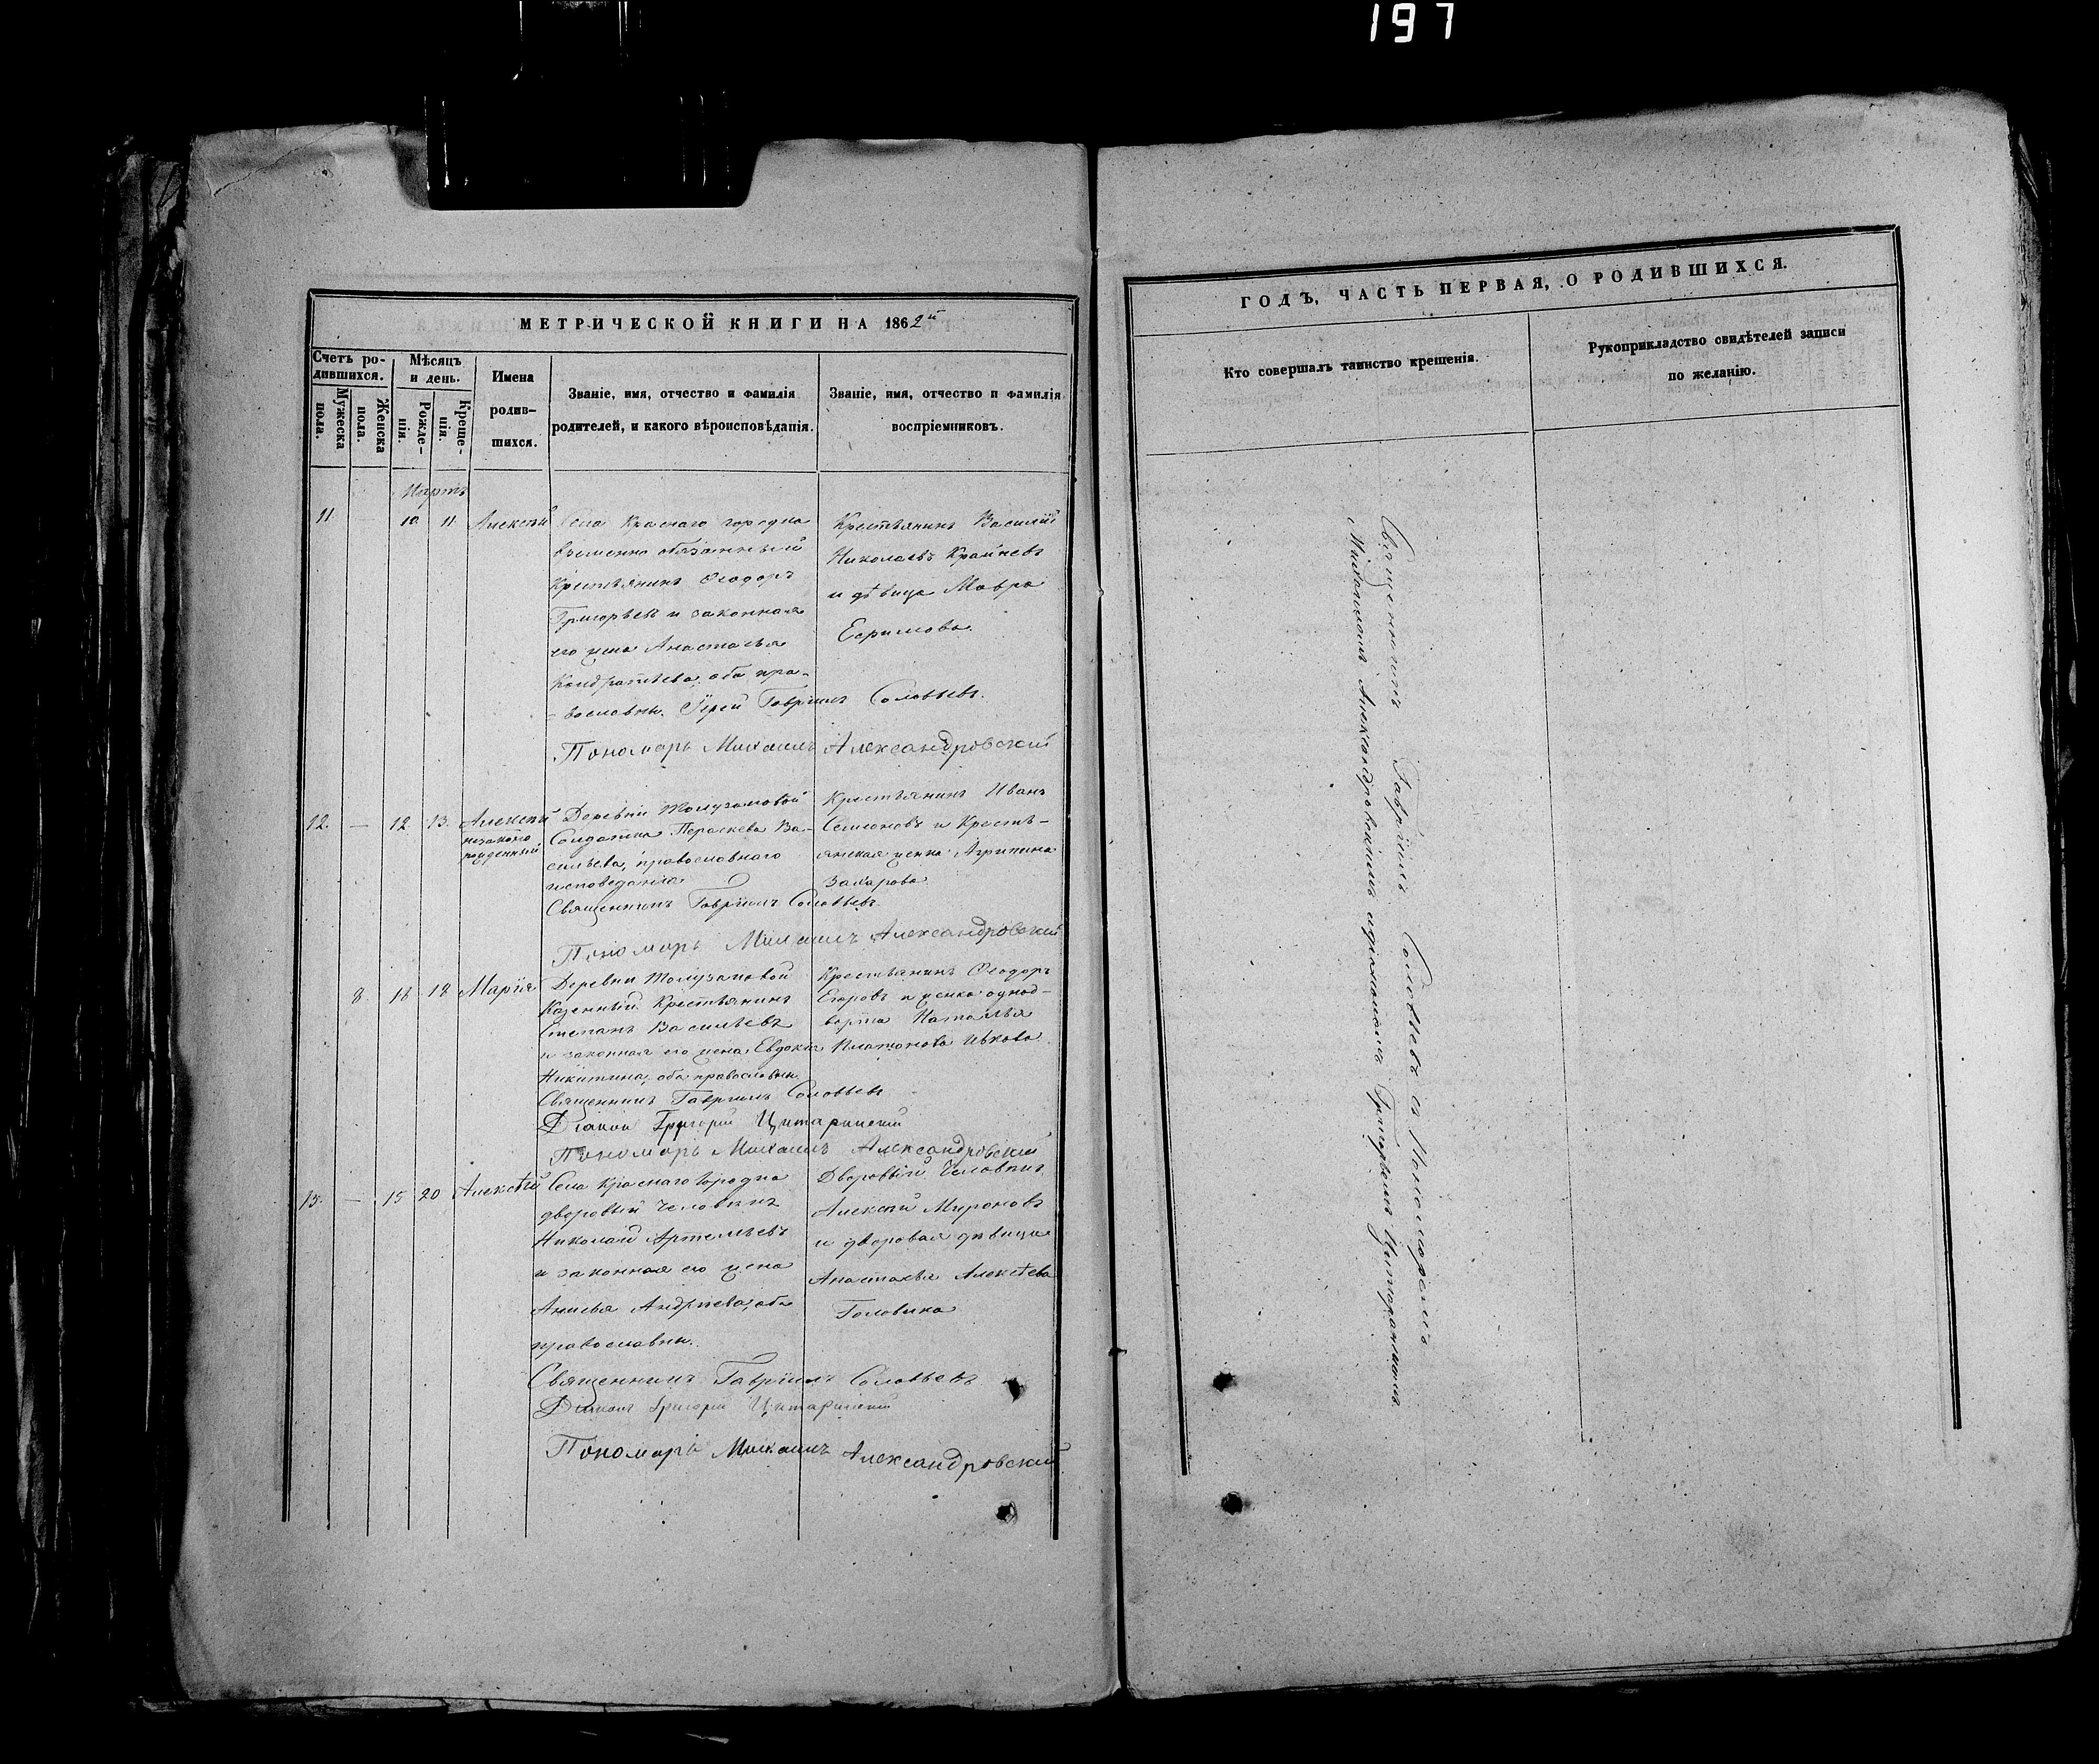 197
МЕТРИЧЕСКОЙ КНИГИ НА 1862й
Счетъ ро-
дившихся.
Мѣсяцъ
и день.
Мужеска
пола.
Женска
пола.
Рожде-
нія.
Креще-
нія.
Имена
родив-
шихся.
Званіе, имя, отчество и фамилія
родителей, и какого вѣроисповѣданія.
Званіе, имя, отчество и фамилія
воспріемниковъ.
Мартъ
11. 10 11 Алексѣй
Села Краснаго городка
временно обязанный
Крестьянинъ Ѳеодоръ
Григорьевъ и законная
его жена Анастасья
Кондратьева, оба пра-
вославны. Іерей Гавріилъ Соловьевъ.
Крестьянинъ Василій
Николаевъ Крайневъ
и дѣвица Мавра
Ефимова.
Пономарь Михаилъ Александровскій
12. — 12 13. Алексѣй
незаконно
рожденный
Деревни
Солдатка Параскева Ва-
сильева, православнаго
исповеданія
Священникъ Гавріилъ Соловьевъ
Крестьянинъ Иванъ
Семеновъ и Кресть-
янская женка Агрипина
Захарова
Пономарь Михаилъ Александровскій
8. 18 18 Марія
Деревни
Казенный Крестьянинъ
Степанъ Васильевъ
и законная его жена Евдокія
Никитина, оба православны
Крестьянинъ Ѳеодоръ
Егоровъ и женка однод-
ворка Наталья
Платонова
Священникъ Гавріилъ Соловьевъ
Діаконъ Григорій
Пономарь Михаилъ Александровскій
13. — 15 20 Алексѣй
Села Краснаго Городка
дворовый человѣкъ
Николай Артемьевъ
и законная его жена
Анисья Андреева, оба
православны.
Дворовый человѣкъ
Алексѣй Мироновъ
и дворовая дѣвица
Анастасья Алексѣева
Головина
Священникъ Гавріилъ Соловьевъ
Діаконъ Григорій
Пономарь Михаилъ Александровскій
ГОДЪ, ЧАСТЬ ПЕРВАЯ, О РОДИВШИХСЯ.
Кто совершалъ таинство крещенія.
Рукоприкладство свидѣтелей записи
по желанію.
Священникъ Гавріилъ Соловьевъ съ Пономаремъ
Михаиломъ Александровскимъ Григорьемъ